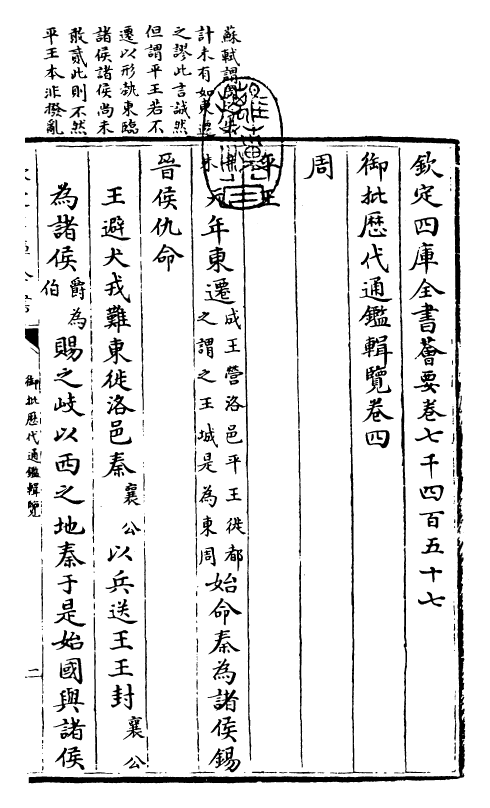 欽定四庫全書薈要卷七千四百五十七
御批歷代通鑑輯覽卷四
周
平王
元年東遷成王營洛邑平王徙都之謂之王城是為東周始命秦為諸侯錫
晉侯仇命
王避犬戎難東徙洛邑秦襄公以兵送王王封襄公
為諸侯爵為伯賜之岐以西之地秦于是始國與諸侯
蘇軾謂
計未有如東遷
之謬此言誠然
但謂平王若不
遷以形埶東臨
諸侯諸侯尚未
敢貳此則不然
平王本非撥亂
御批歷代通鑑輯覽
二